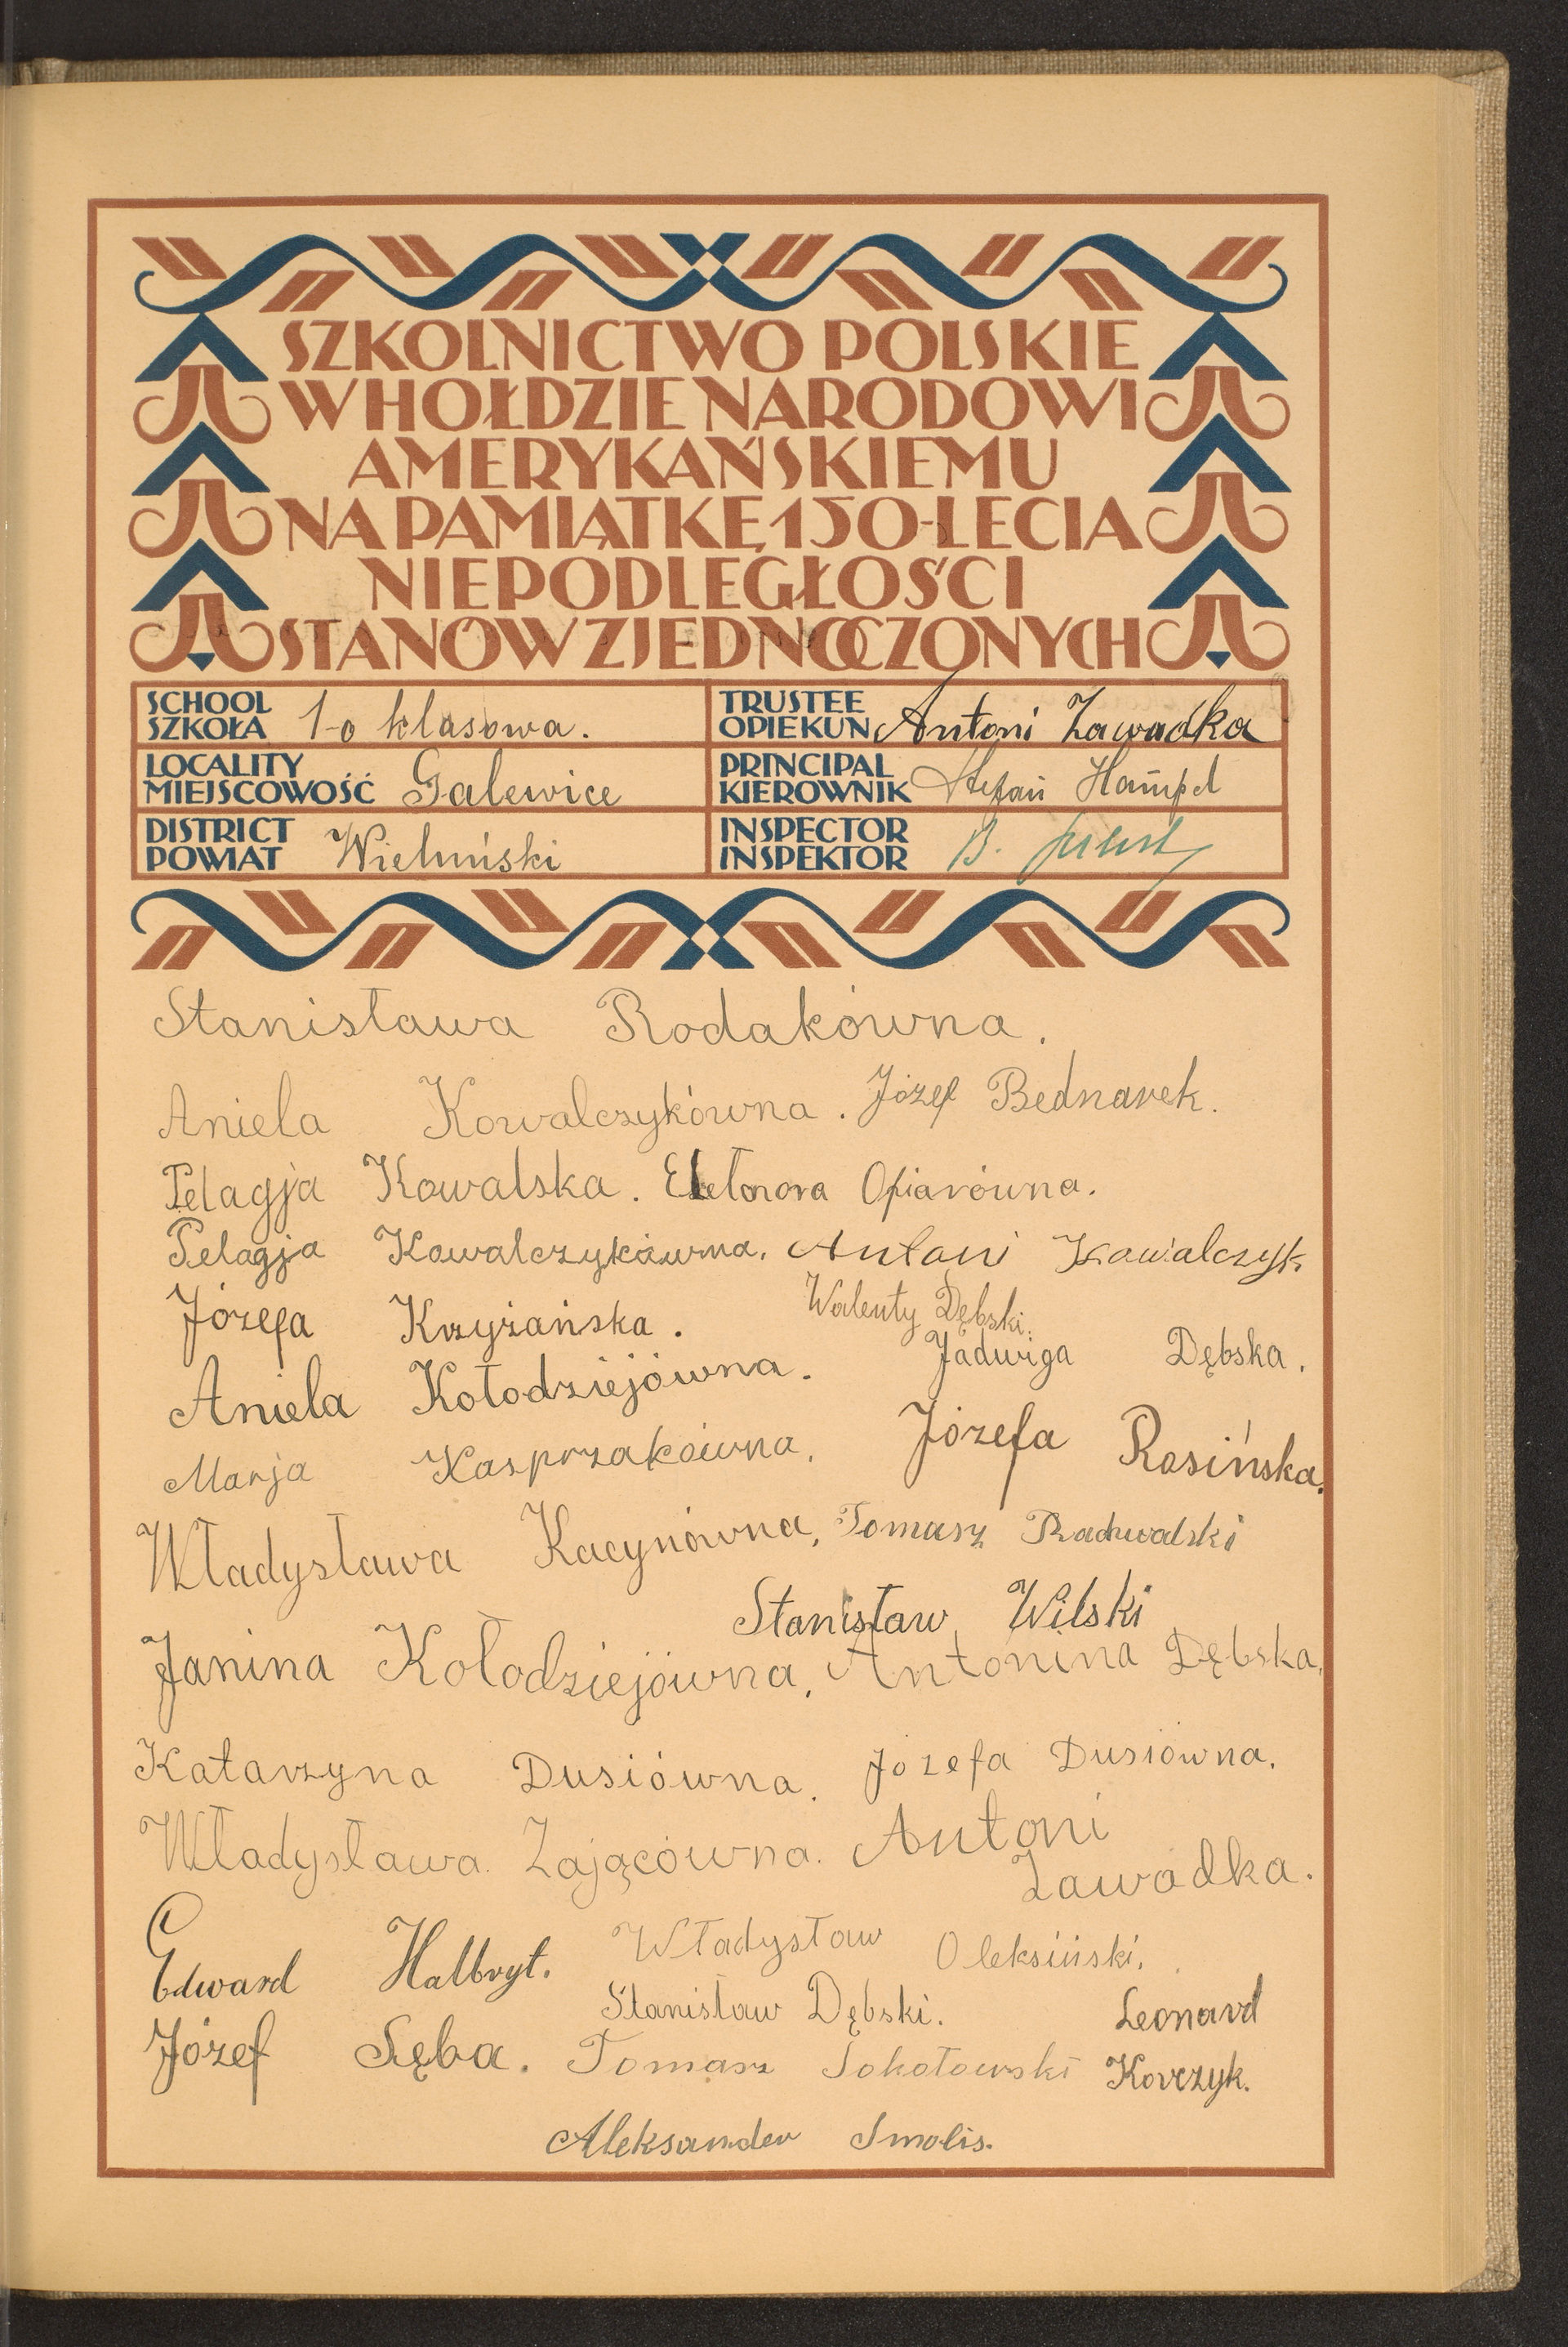 SZKOLNICTWO POLSKIE
W HOŁDZIE NARODOWI
AMERYKAŃSKIEMU
NA PAMIĄTKĘ 150-LECIA
NIEPODLEGŁOŚCI
STANÓW ZJEDNOCZONYCH
SCHOOL
SZKOŁA 1-o klasowa.
TRUSTEE
OPIEKUN Antoni Zawadka
LOCALITY
MIEJSCOWOŚĆ Galewice
PRINCIPAL
KIEROWNIK Stefan Hampel
DISTRICT
POWIAT Wieluński
INSPECTOR
INSPEKTOR B.
Stanisława Rodakówna.
Aniela Kowalczykówna. Józef Bednarek.
Pelagja Kowalska. Ofiarówna.
Pelagja Kowalczykówna. Antoni Kowalczyk
Józefa Krzyżańska. Walenty Dębski.
Aniela Kołodziejówna. Jadwiga Dębska.
Marja Kasprzakówna. Józefa Rosińska.
Władysława Kacynówna, Tomasz Radwalski
Stanisław Wilski
Janina Kołodziejówna, Antonina Dębska.
Katarzyna Dusiówna. Józefa Dusiówna.
Władysława Zającówna. Antoni
Zawadka.
Edward Halbryt. Władysław Oleksiński.
Stanisław Dębski. Leonard
Józef Sęba. Tomasz Sokołowski Korczyk.
Aleksander Smolis.